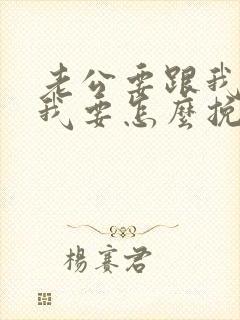 老公要跟我
我要怎麼挽
楊賽君